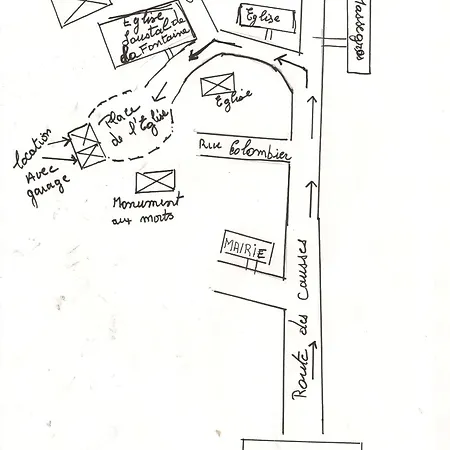 Massegros
Eglise
Eglise
Loustal de
La Fontaine
Eglise
Place
de l'Eglise
location
Avec
garage
Rue Colombier
Monument
aux morts
MAIRIE
Route des Causses